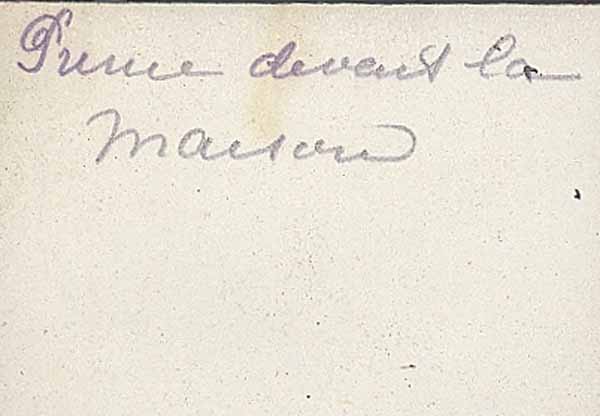 Prise devant la
maison